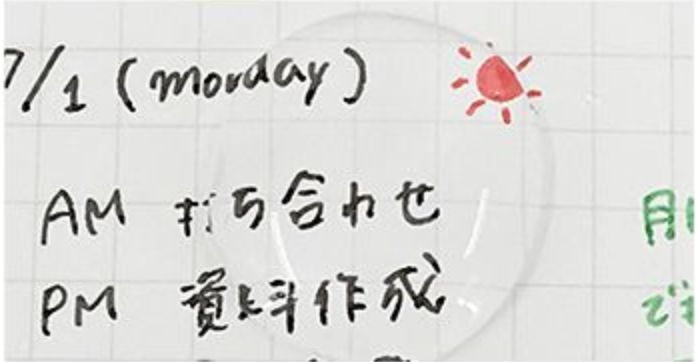 7/1 (monday)
AM 打ち合わせ
PM 資料作成